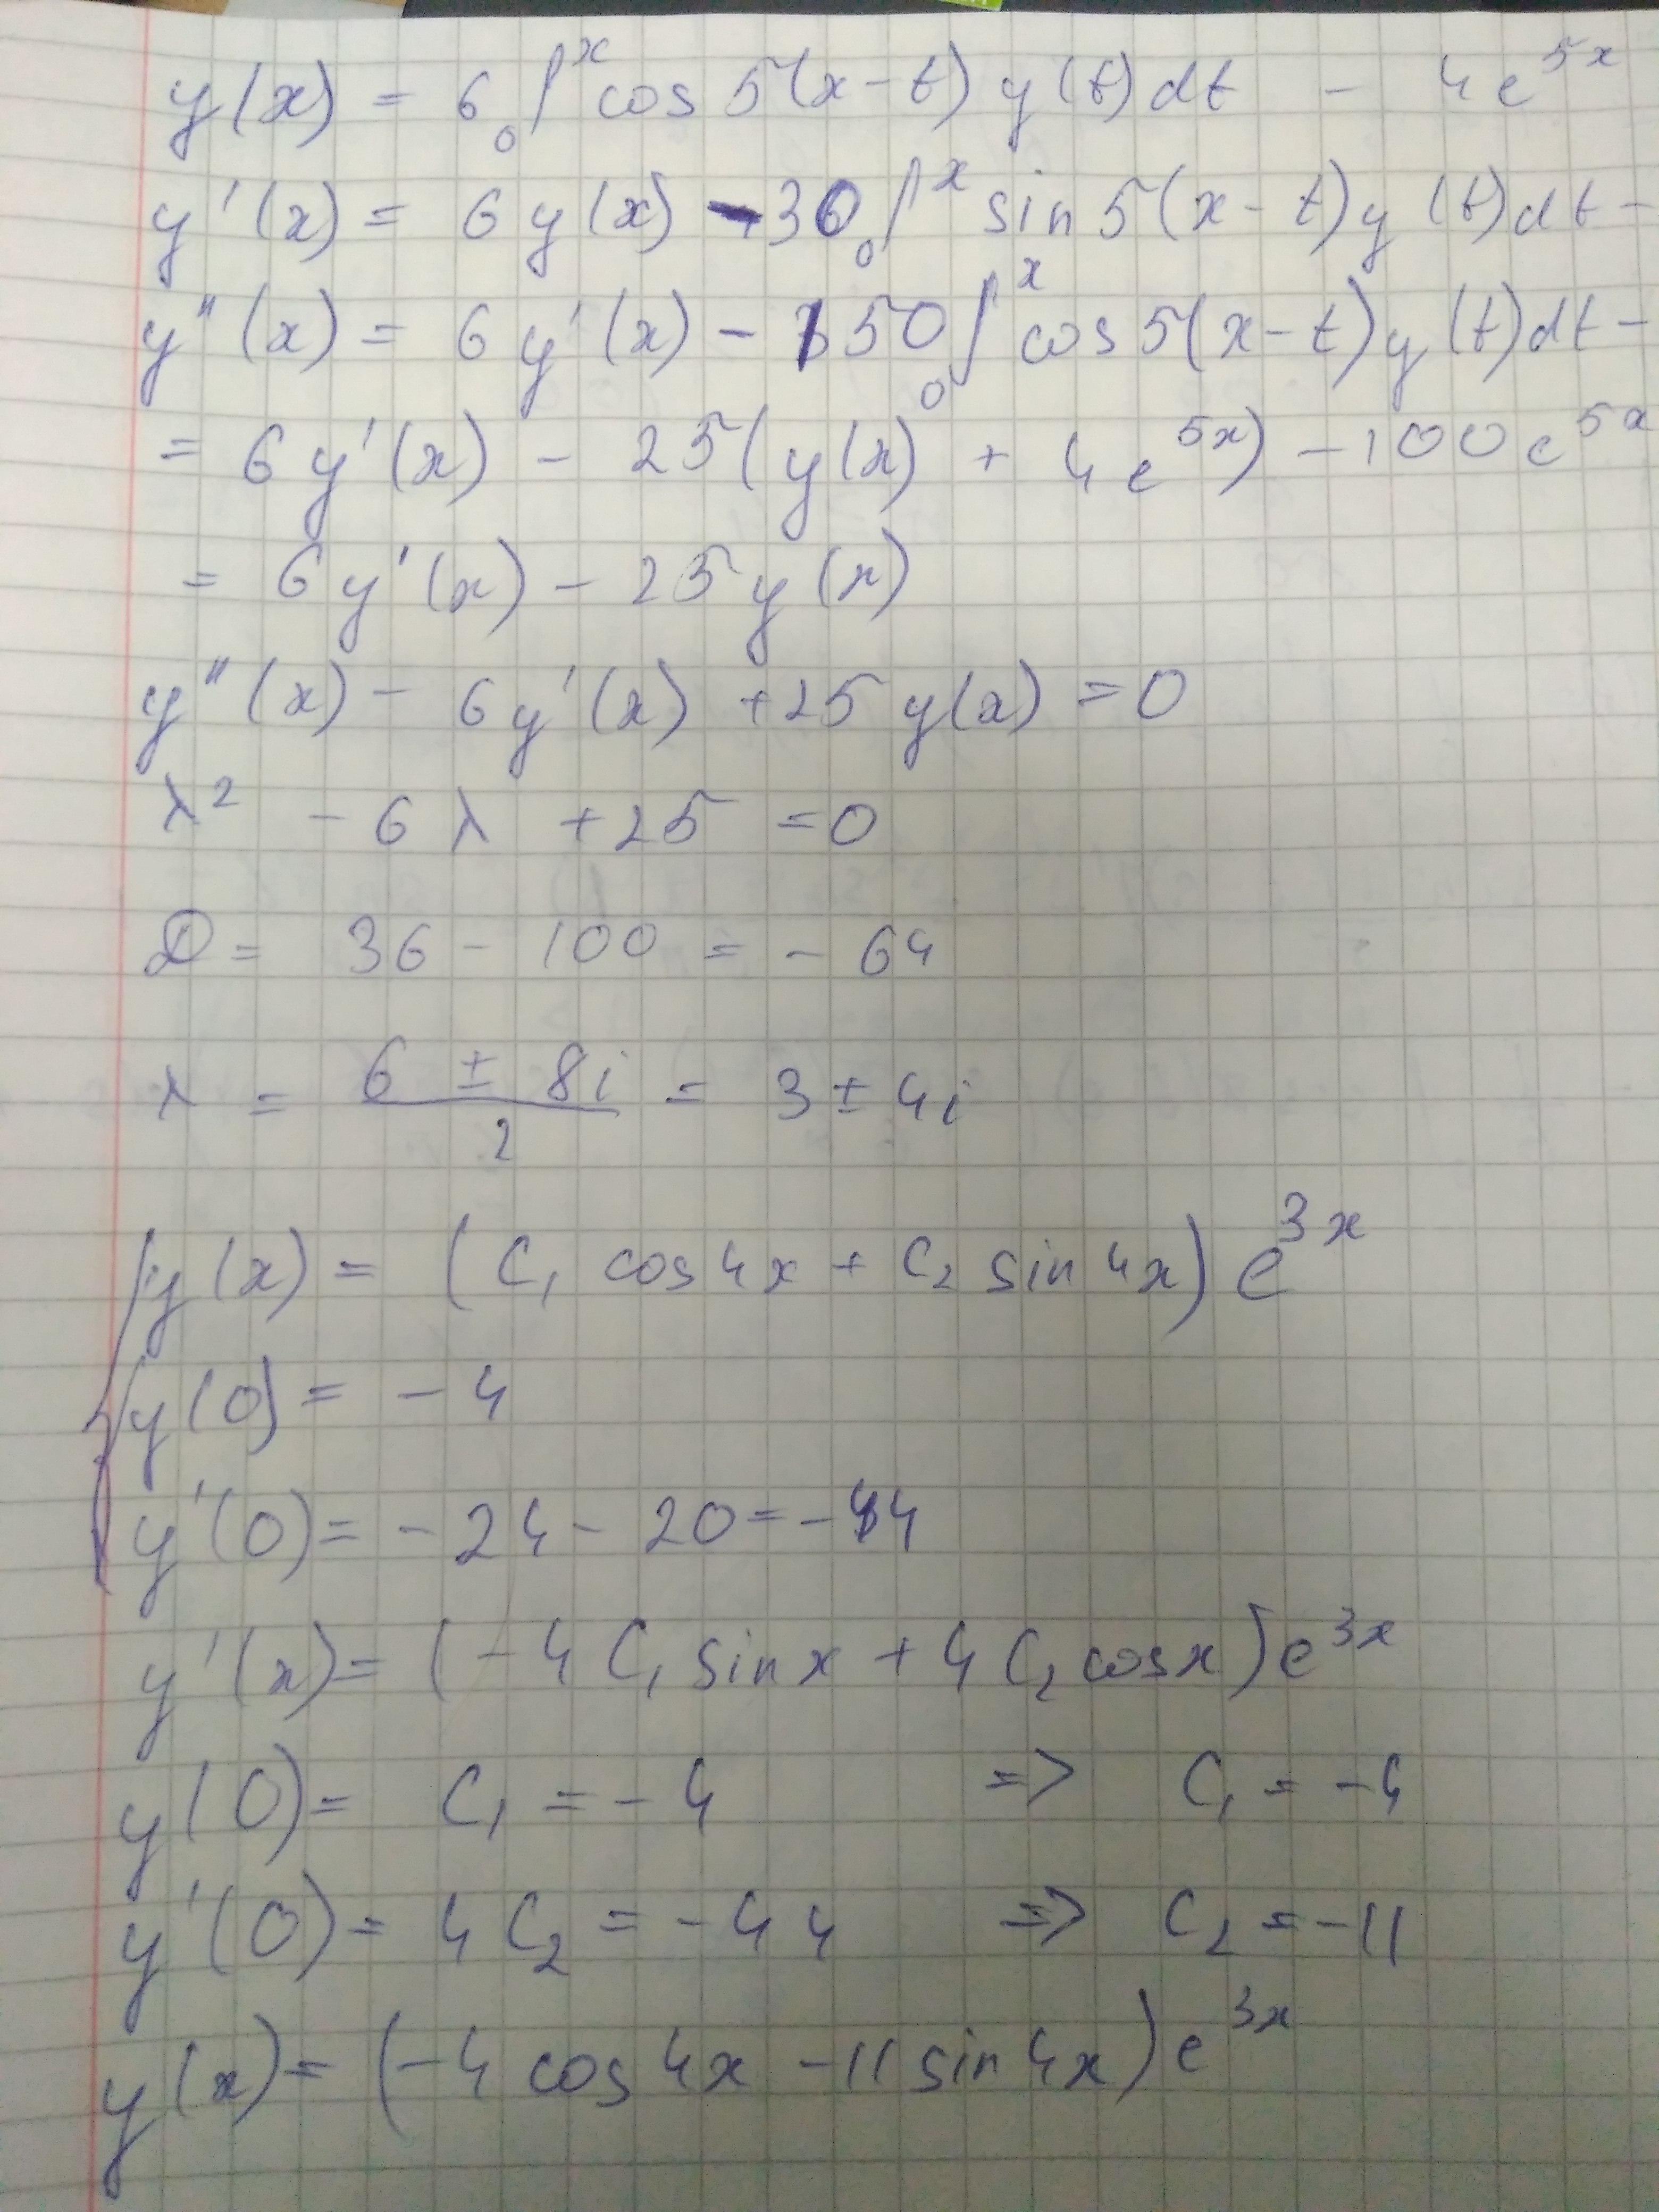 y(x) = 6 ₀∫ˣ cos 5(x-t) y(t) dt - 4e⁵ˣ
y'(x) = 6y(x) - 30 ₀∫ˣ sin 5(x-t) y(t) dt -
y''(x) = 6y'(x) - 150 ₀∫ˣ cos 5(x-t) y(t) dt -
= 6y'(x) - 25(y(x) + 4e⁵ˣ) - 100e⁵ˣ
= 6y'(x) - 25y(x)
y''(x) - 6y'(x) + 25y(x) = 0
λ² - 6λ + 25 = 0
D = 36 - 100 = -64
λ = (6 ± 8i)/2 = 3 ± 4i
y(x) = (C₁ cos 4x + C₂ sin 4x) e³ˣ
y(0) = -4
y'(0) = -24 - 20 = -44
y'(x) = (-4C₁ sin x + 4C₂ cos x) e³ˣ
y(0) = C₁ = -4 => C₁ = -4
y'(0) = 4C₂ = -44 => C₂ = -11
y(x) = (-4 cos 4x - 11 sin 4x) e³ˣ